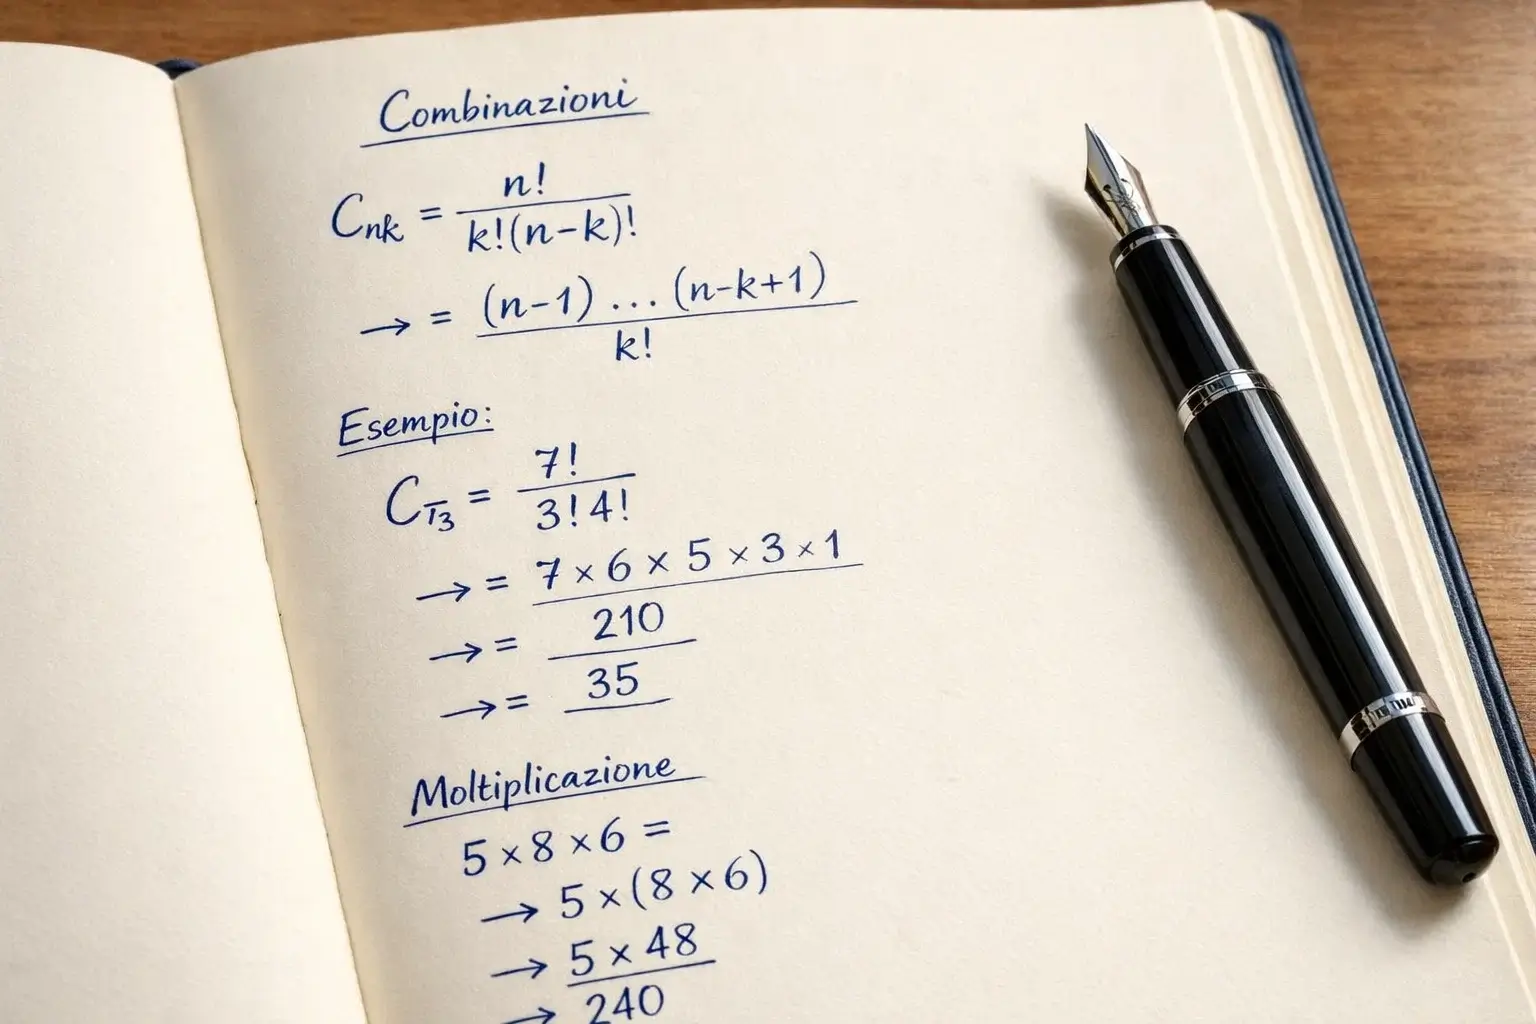 Combinazioni
Cnk = n! / k!(n-k)!
→ = (n-1) ... (n-k+1) / k!
Esempio:
C73 = 7! / 3! 4!
→ = 7 × 6 × 5 × 3 × 1
→ = 210
→ = 35
Moltiplicazione
5 × 8 × 6 =
→ 5 × (8 × 6)
→ 5 × 48
→ 240